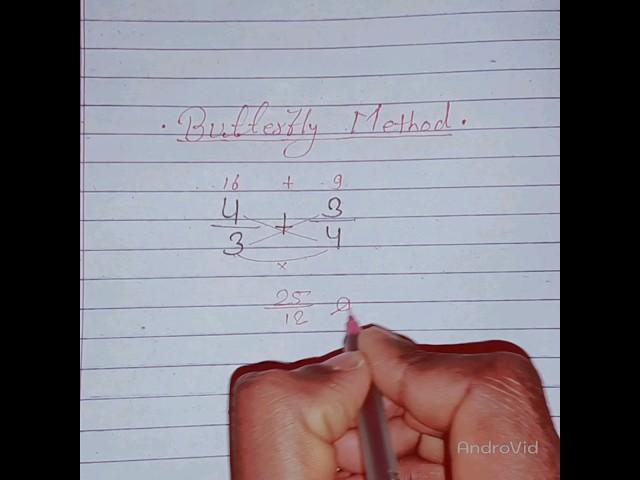 . Butterfly Method .
16 + 9
4/3 + 3/4
x
25/12
AndroVid